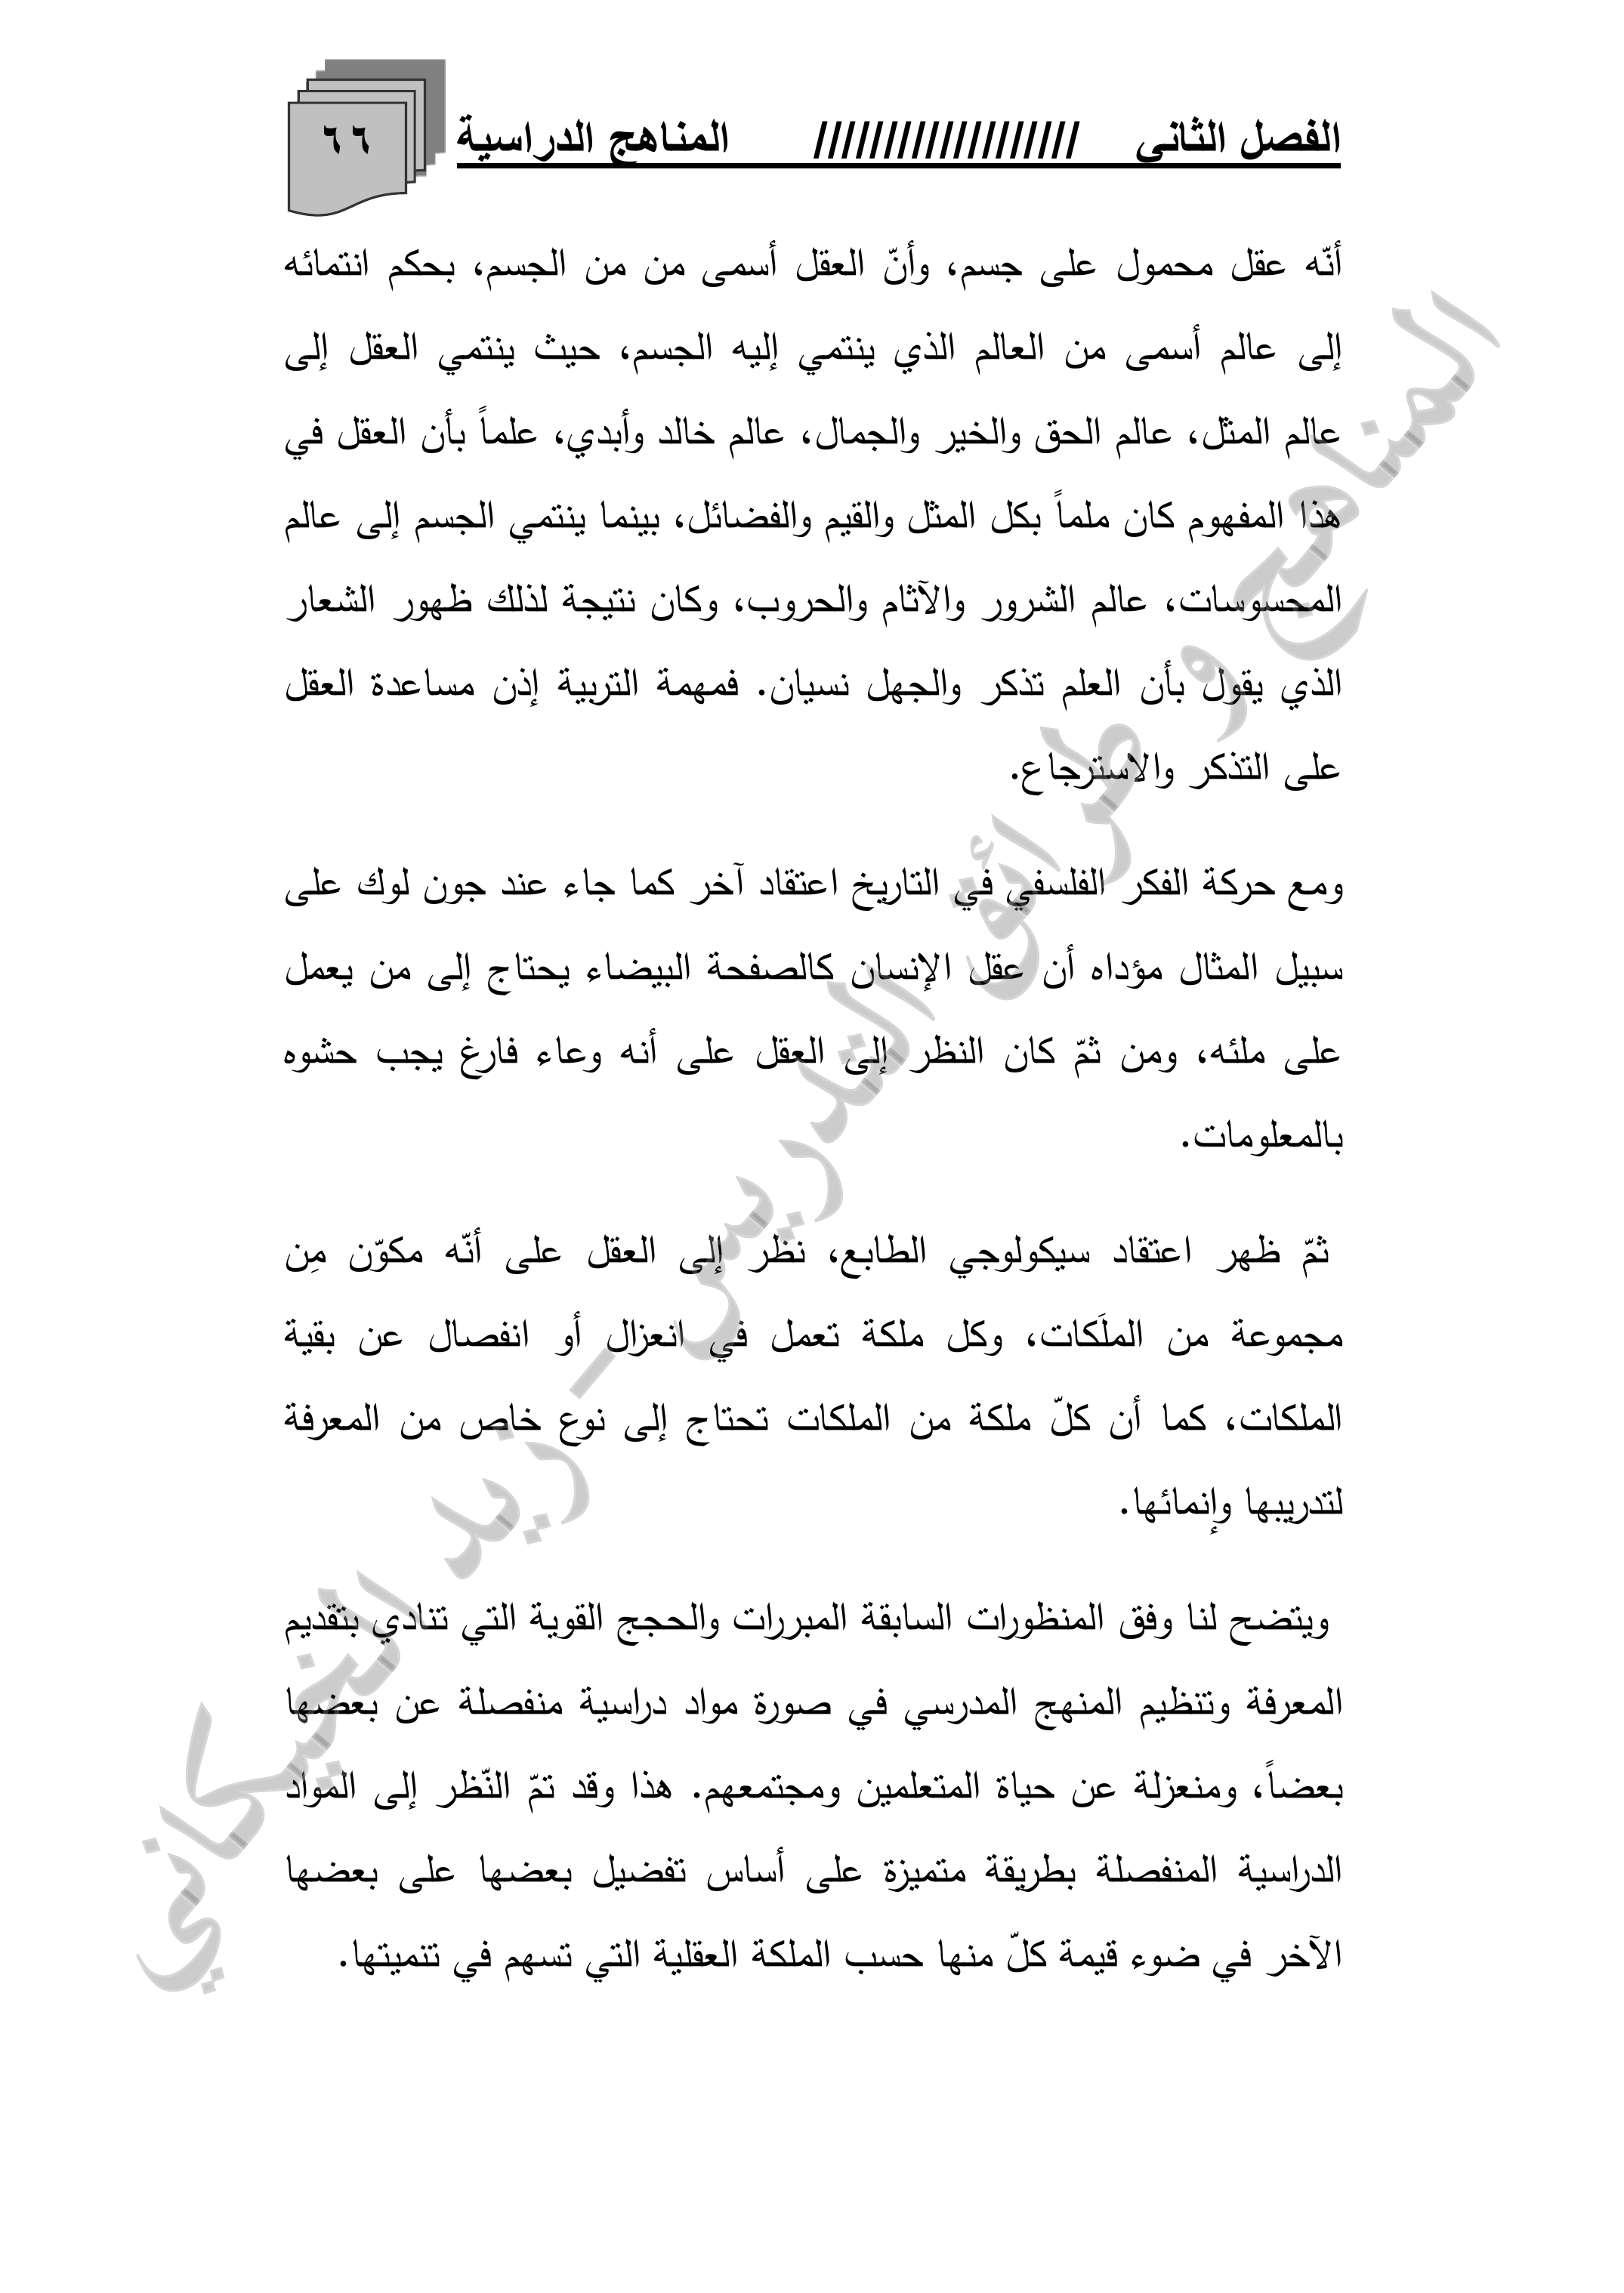 الفصل الثاني /////////////////// المناهج الدراسية ٦٦
أنّه عقل محمول على جسم، وأنّ العقل أسمى من من الجسم، بحكم انتمائه
إلى عالم أسمى من العالم الذي ينتمي إليه الجسم، حيث ينتمي العقل إلى
عالم المثل، عالم الحق والخير والجمال، عالم خالد وأبدي، علماً بأن العقل في
هذا المفهوم كان ملماً بكل المثل والقيم والفضائل، بينما ينتمي الجسم إلى عالم
المحسوسات، عالم الشرور والآثام والحروب، وكان نتيجة لذلك ظهور الشعار
الذي يقول بأن العلم تذكر والجهل نسيان. فمهمة التربية إذن مساعدة العقل
على التذكر والاسترجاع.
ومع حركة الفكر الفلسفي في التاريخ اعتقاد آخر كما جاء عند جون لوك على
سبيل المثال مؤداه أن عقل الإنسان كالصفحة البيضاء يحتاج إلى من يعمل
على ملئه، ومن ثمّ كان النظر إلى العقل على أنه وعاء فارغ يجب حشوه
بالمعلومات.
ثمّ ظهر اعتقاد سيكولوجي الطابع، نظر إلى العقل على أنّه مكوّن مِن
مجموعة من الملَكات، وكل ملكة تعمل في انعزال أو انفصال عن بقية
الملكات، كما أن كلّ ملكة من الملكات تحتاج إلى نوع خاص من المعرفة
لتدريبها وإنمائها.
ويتضح لنا وفق المنظورات السابقة المبررات والحجج القوية التي تنادي بتقديم
المعرفة وتنظيم المنهج المدرسي في صورة مواد دراسية منفصلة عن بعضها
بعضاً، ومنعزلة عن حياة المتعلمين ومجتمعهم. هذا وقد تمّ النّظر إلى المواد
الدراسية المنفصلة بطريقة متميزة على أساس تفضيل بعضها على بعضها
الآخر في ضوء قيمة كلّ منها حسب الملكة العقلية التي تسهم في تنميتها.
المناهج و طرائق التدريس – زيد الخيكاني